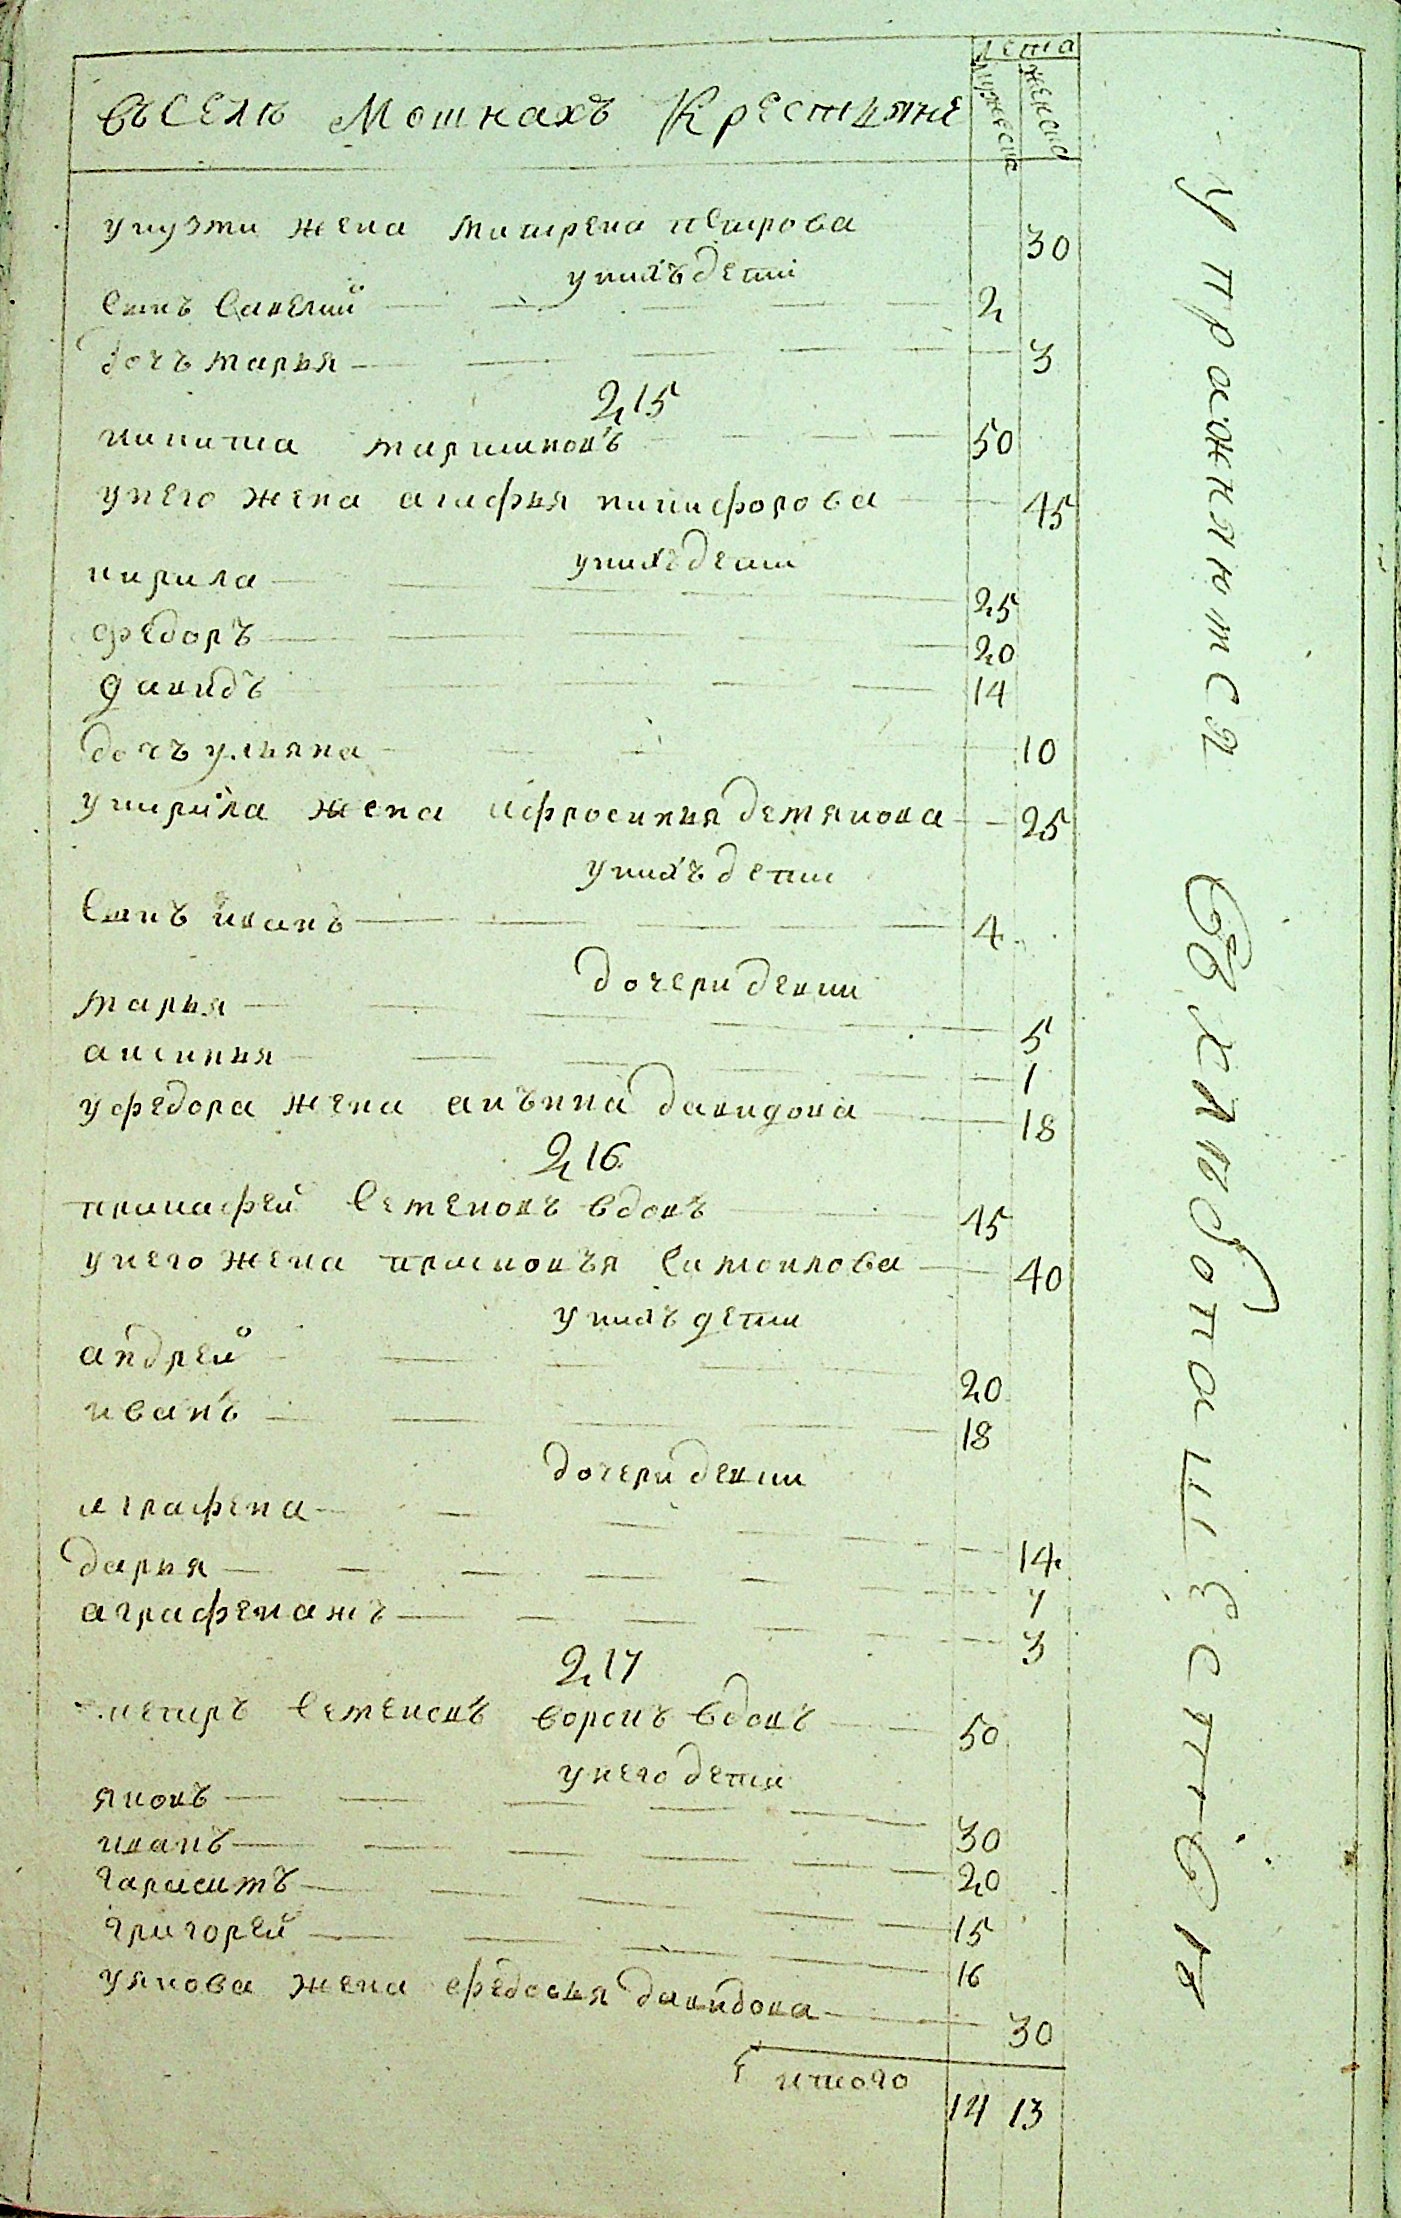 лета
въ Селѣ Мошнахъ Крестьяне
мужеска
женска
укузми жена матрена петрова 30
унихъ дети
Сынъ Савелий 2
дочь марья 3
215
никита мартиновъ 50
унего жена агафья никифорова 45
унихъ дети
кирила 25
федоръ 20
давидъ 14
дочь ульяна 10
укирила жена афросинья демянова 25
унихъ дети
Сынъ иванъ 4
дочери девки
марья 5
аксинья 1
уфедора жена анънна давидова 18
216
пранафей Семеновъ вдовъ 45
унего жена прасковъя Самоилова 40
унихъ дети
андрей 20
иванъ 18
дочери девки
аграфена 14
дарья 7
аграфенажъ 3
217
петръ Семеновъ воронъ вдовъ 50
унего дети
яковъ 30
иванъ 20
гарасимъ 15
григорей 16
уякова жена федосья давидова 30
итого 14 13
упражняются въ хлебопашествѣ